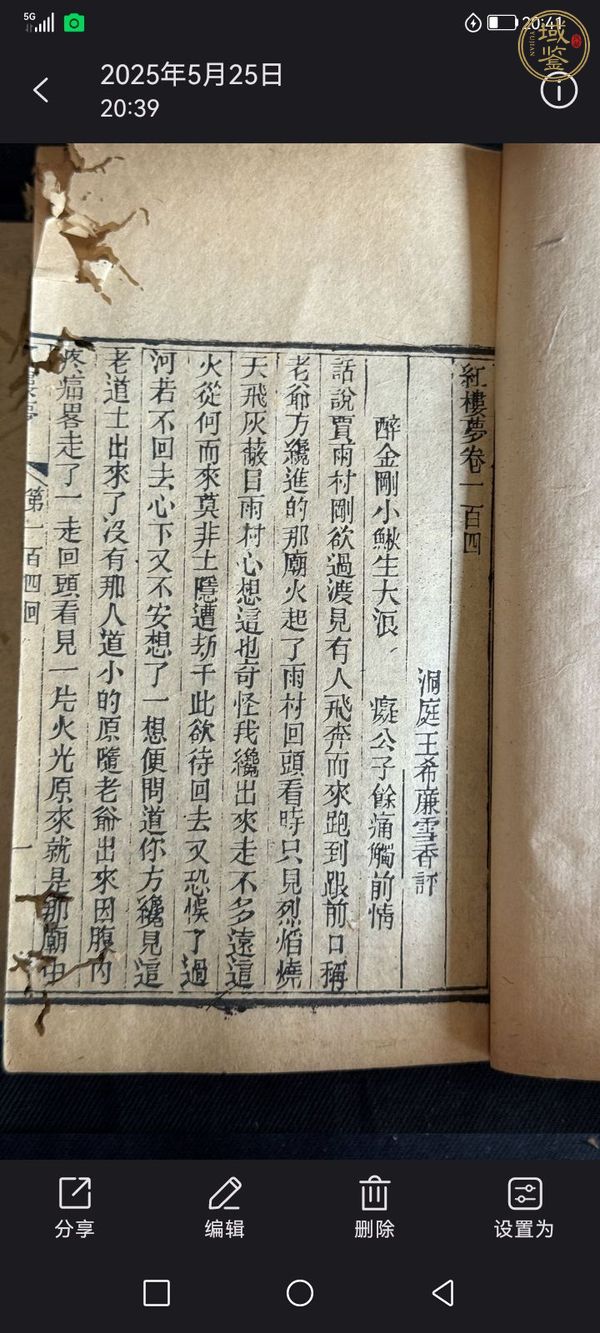 5G
20:41
域鉴
YUJIAN
2025年5月25日
20:39
紅樓夢卷一百四
洞庭王希廉雪香評
醉金剛小鰍生大浪 癡公子餘痛觸前情
話說賈雨村剛欲過渡見有人飛奔而來跑到跟前口稱
老爺方纔進的那廟火起了雨村回頭看時只見烈焰燒
天飛灰蔽目雨村心想這也奇怪我纔出來走不多遠這
火從何而來莫非士隱遭劫于此欲待回去又恐悞了過
河若不回去心下又不安想了一想便問道你方纔見這
老道士出來了沒有那人道小的原隨老爺出來因腹內
疼痛畧走了一走回頭看見一片火光原來就是那廟中
第一百四回
一
分享
编辑
删除
设置为